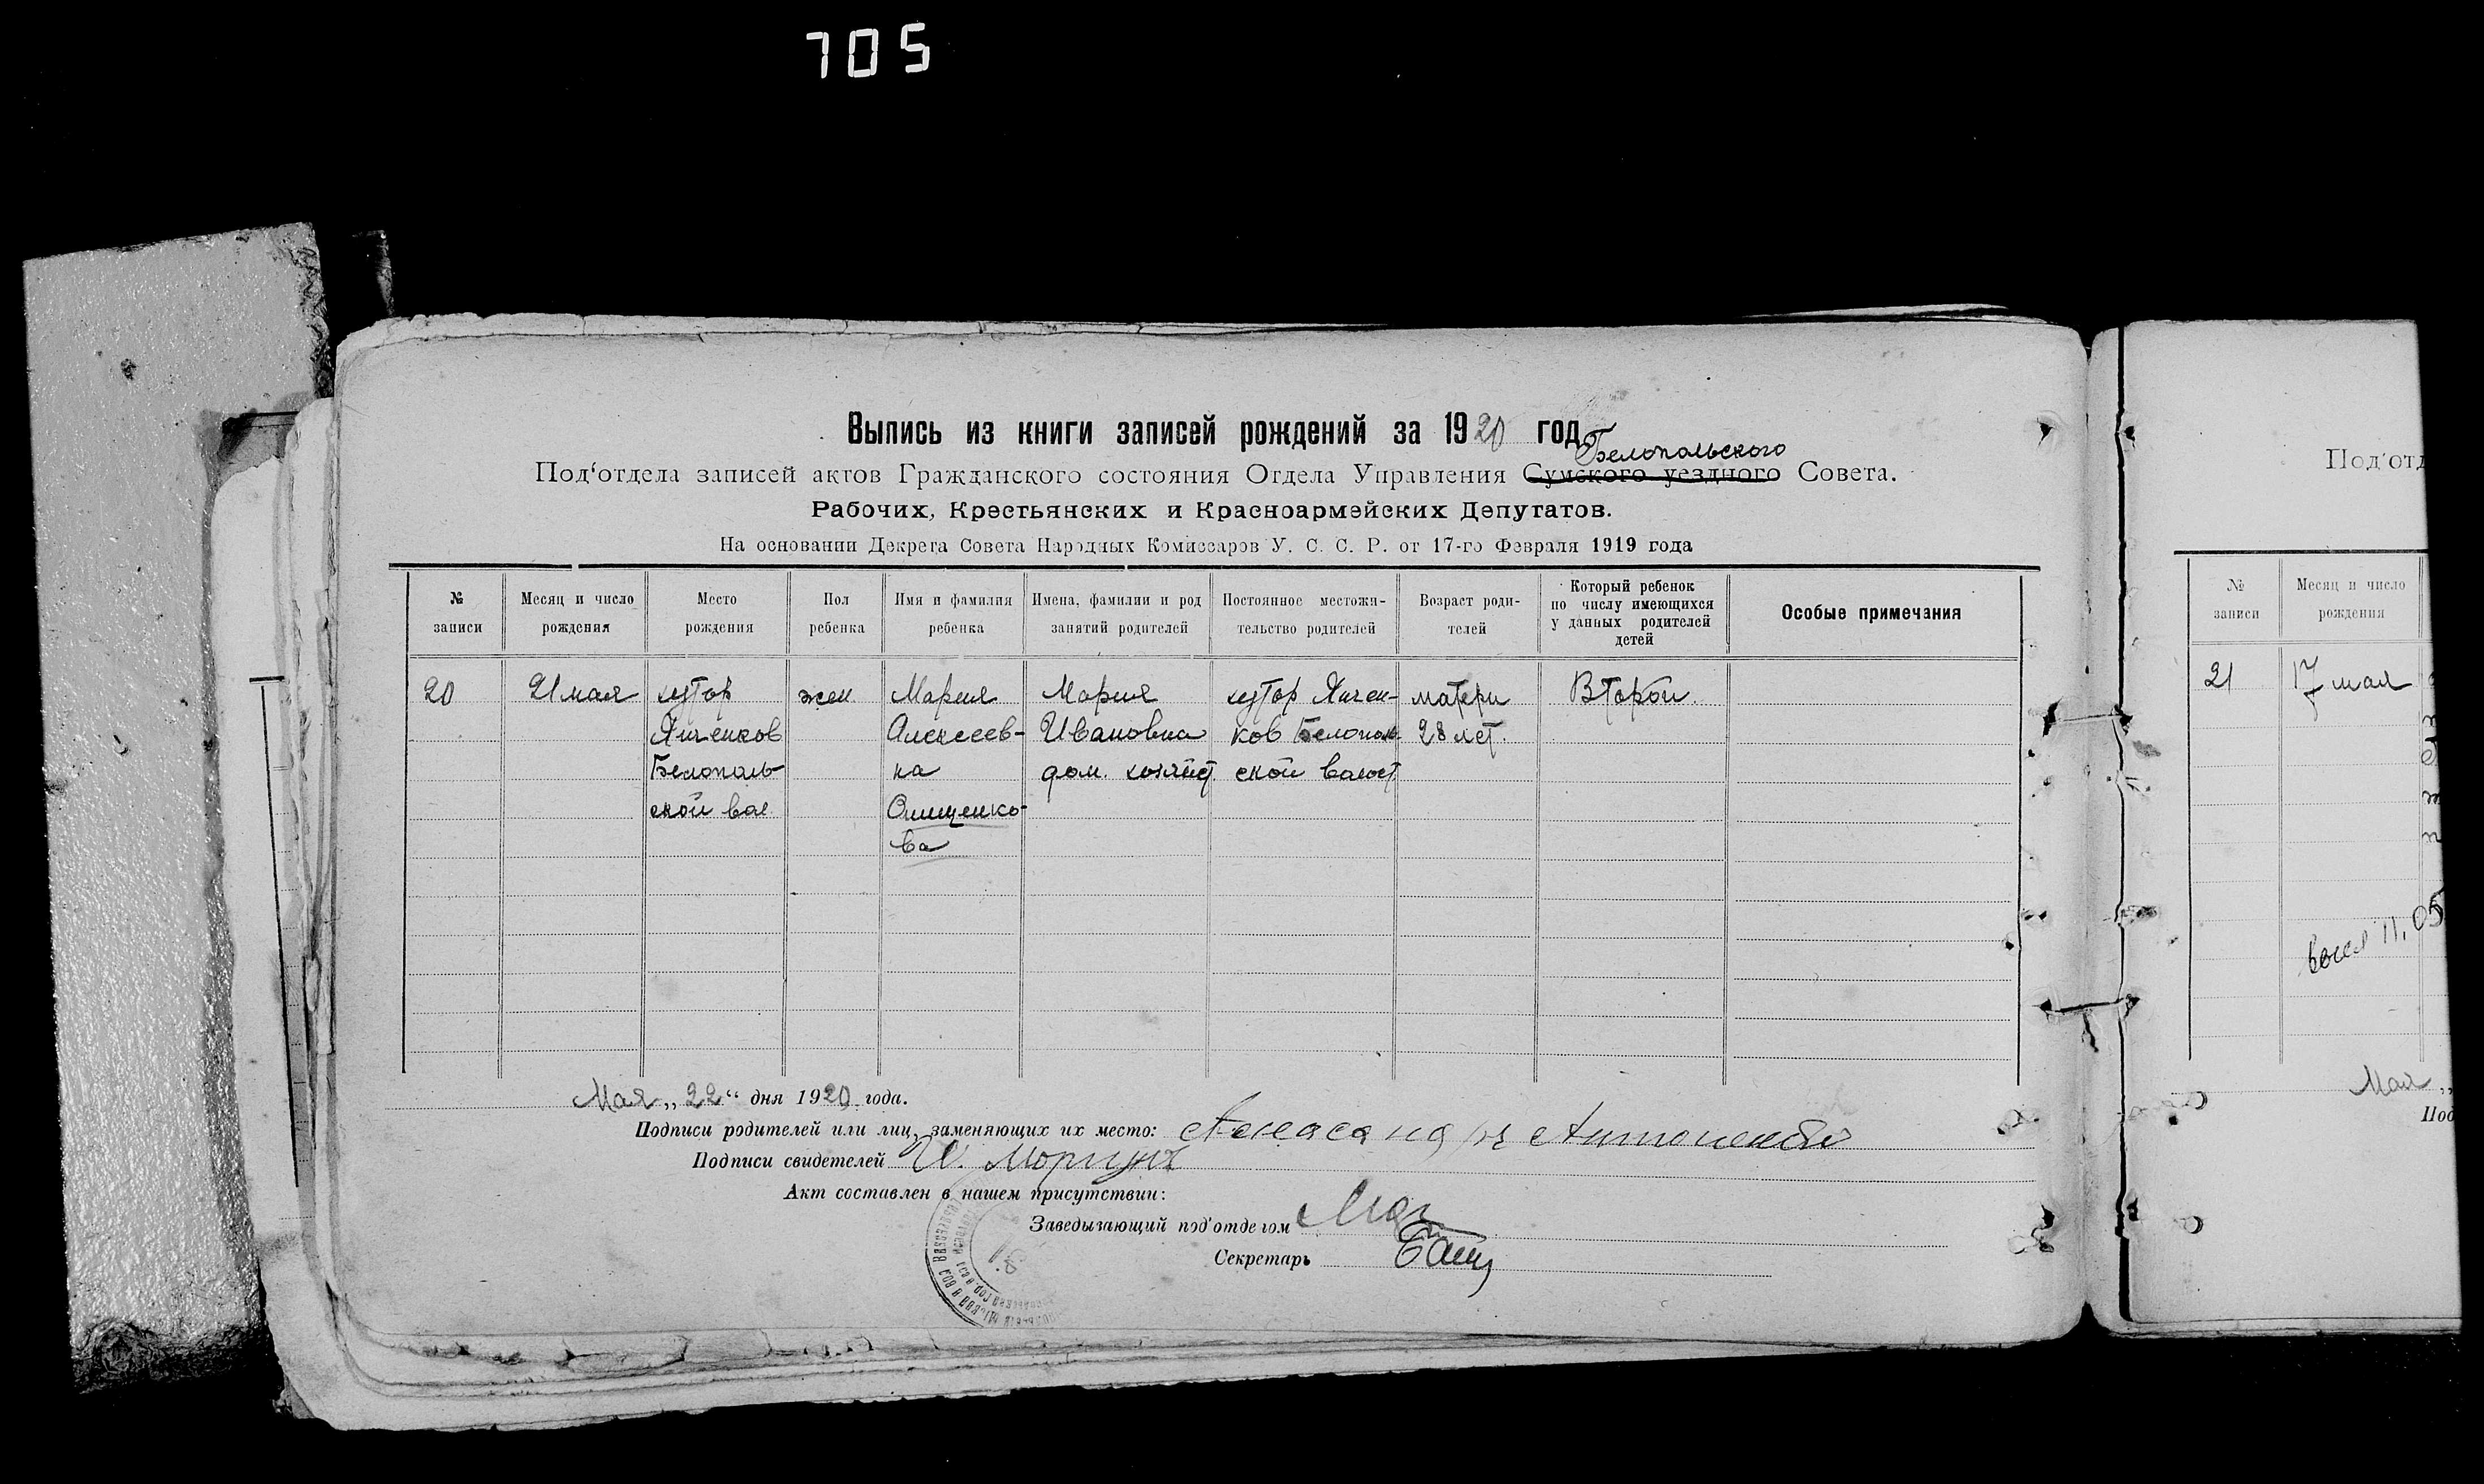 705
Выпись из книги записей рождений за 1920 год
Белопольского
Под'отдела записей актов Гражданского состояния Отдела Управления Сумского уездного Совета.
Рабочих, Крестьянских и Красноармейских Депутатов.
На основании Декрета Совета Народных Комиссаров У. С. С. Р. от 17-го Февраля 1919 года
№ записи
Месяц и число рождения
Место рождения
Пол ребенка
Имя и фамилия ребенка
Имена, фамилии и род занятий родителей
Постоянное местожительство родителей
Возраст родителей
Который ребенок по числу имеющихся у данных родителей детей
Особые примечания
20
21 мая
хутор
Яценков
Белополь-
ской вол.
жен.
Мария
Алексеев-
на
Онищенко-
ва
Мария
Ивановна
дом. хозяйст
хутор Яцен-
ков Белополь-
ской волост
матери
28 лет.
Второй.
Мая „22“ дня 1920 года.
Подписи родителей или лиц, заменяющих их место:
Подписи свидетелей
Акт составлен в нашем присутствии:
Заведывающий под'отделом
Секретарь
Под'отд
№ записи
Месяц и число рождения
21
17 мая
Мая „
Под